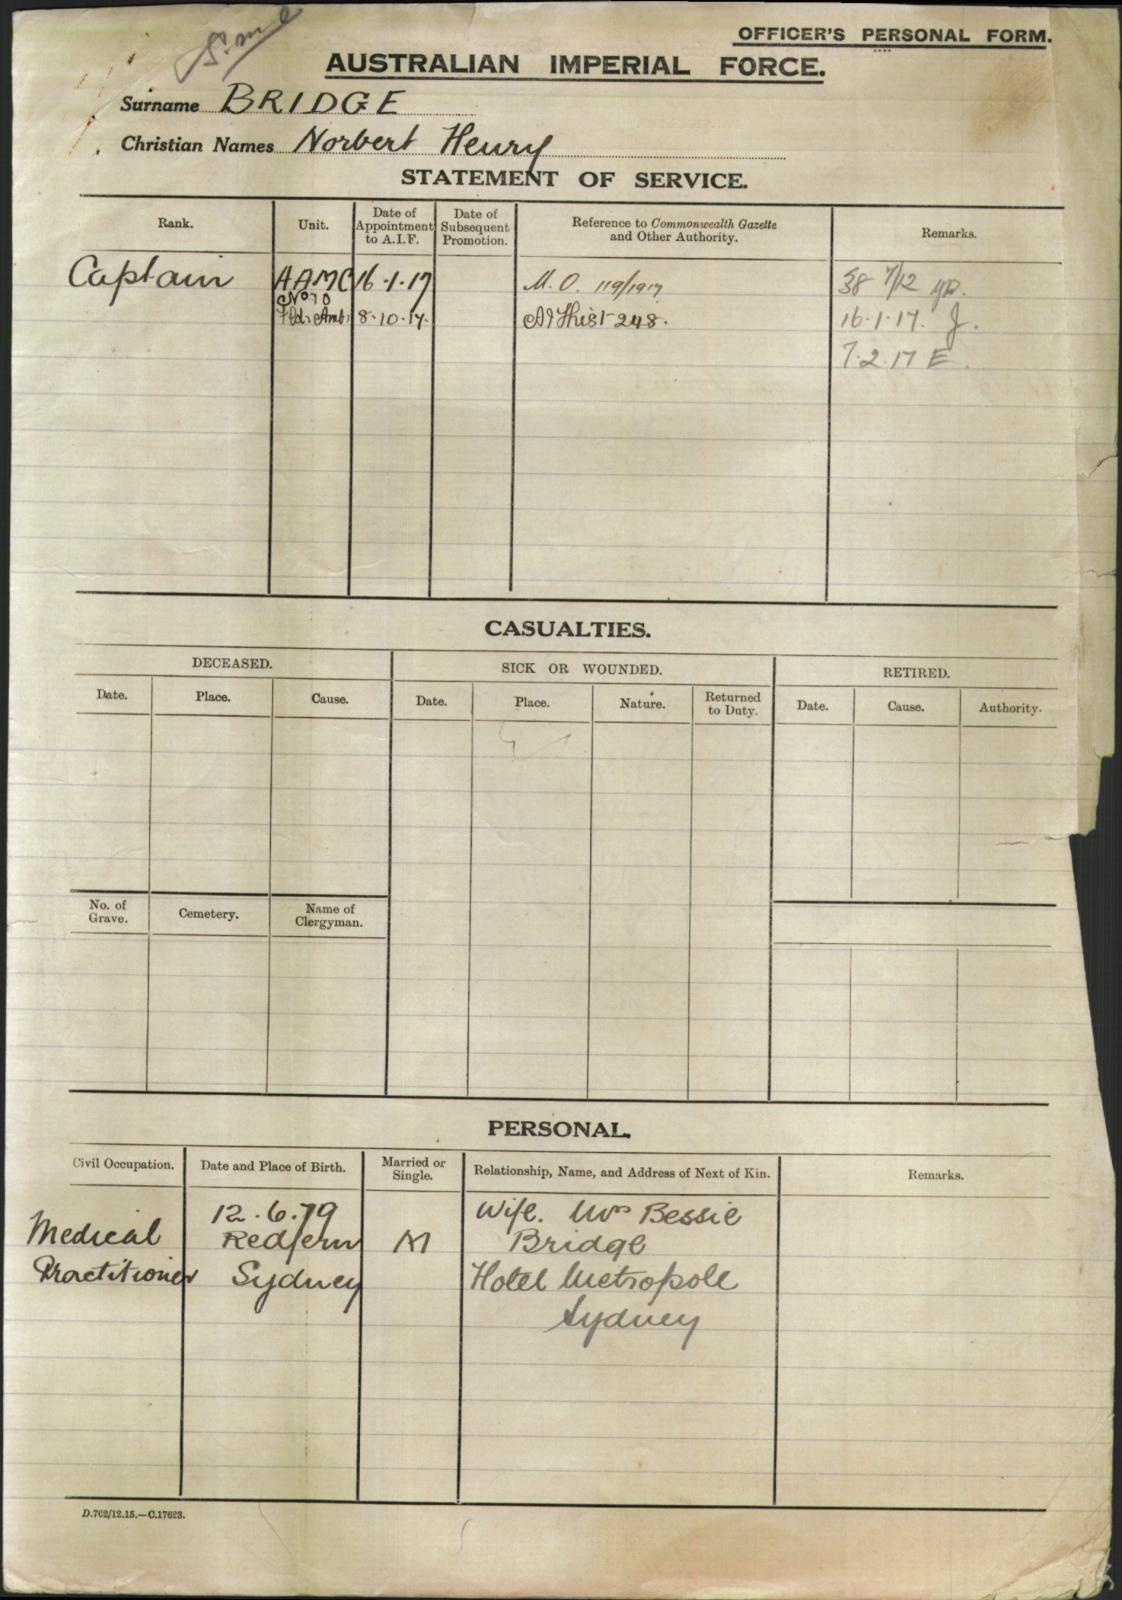 OFFICER'S PERSONAL FORM.
AUSTRALIAN IMPERIAL FORCE.
Surname BRIDGE
Christian Names Norbert Henry
STATEMENT OF SERVICE.
Rank.
Unit.
Date of Appointment to A.I.F.
Date of Subsequent Promotion.
Reference to Commonwealth Gazette and Other Authority.
Remarks.
Captain AAMC 16.1.17 M.O. 119/1917 38 7/12 yr.
No 10
Fld. Amb. 8.10.17. 248. 16.1.17. J.
7.2.17 E.
CASUALTIES.
DECEASED. SICK OR WOUNDED. RETIRED.
Date. Place. Cause. Date. Place. Nature. Returned to Duty. Date. Cause. Authority.
No. of Grave. Cemetery. Name of Clergyman.
PERSONAL.
Civil Occupation. Date and Place of Birth. Married or Single. Relationship, Name, and Address of Next of Kin. Remarks.
12.6.79 Wife. Mrs Bessie
Medical Redfern M Bridge
Practitioner Sydney Hotel Metropole
Sydney
D.762/12.15.—C.17623.